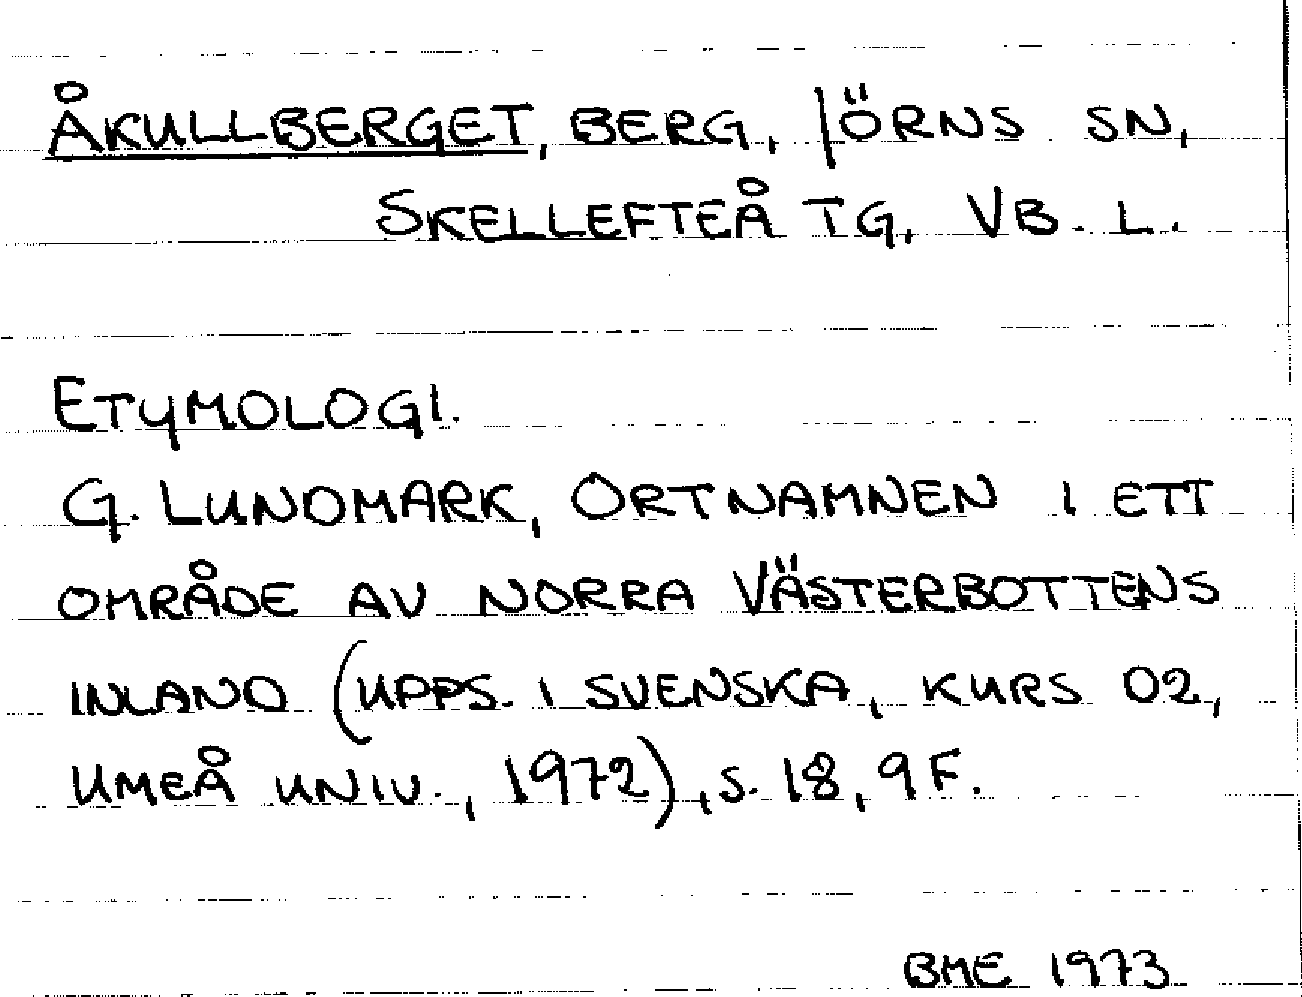 ÅKULLBERGET, BERG, JÖRNS SN,
SKELLEFTEÅ TG, VB. L.
ETYMOLOGI.
G. LUNDMARK, ORTNAMNEN I ETT
OMRÅDE AV NORRA VÄSTERBOTTENS
INLAND (UPPS. I SVENSKA, KURS 02,
UMEÅ UNIV., 1972), S. 18, 9F.
BME 1973